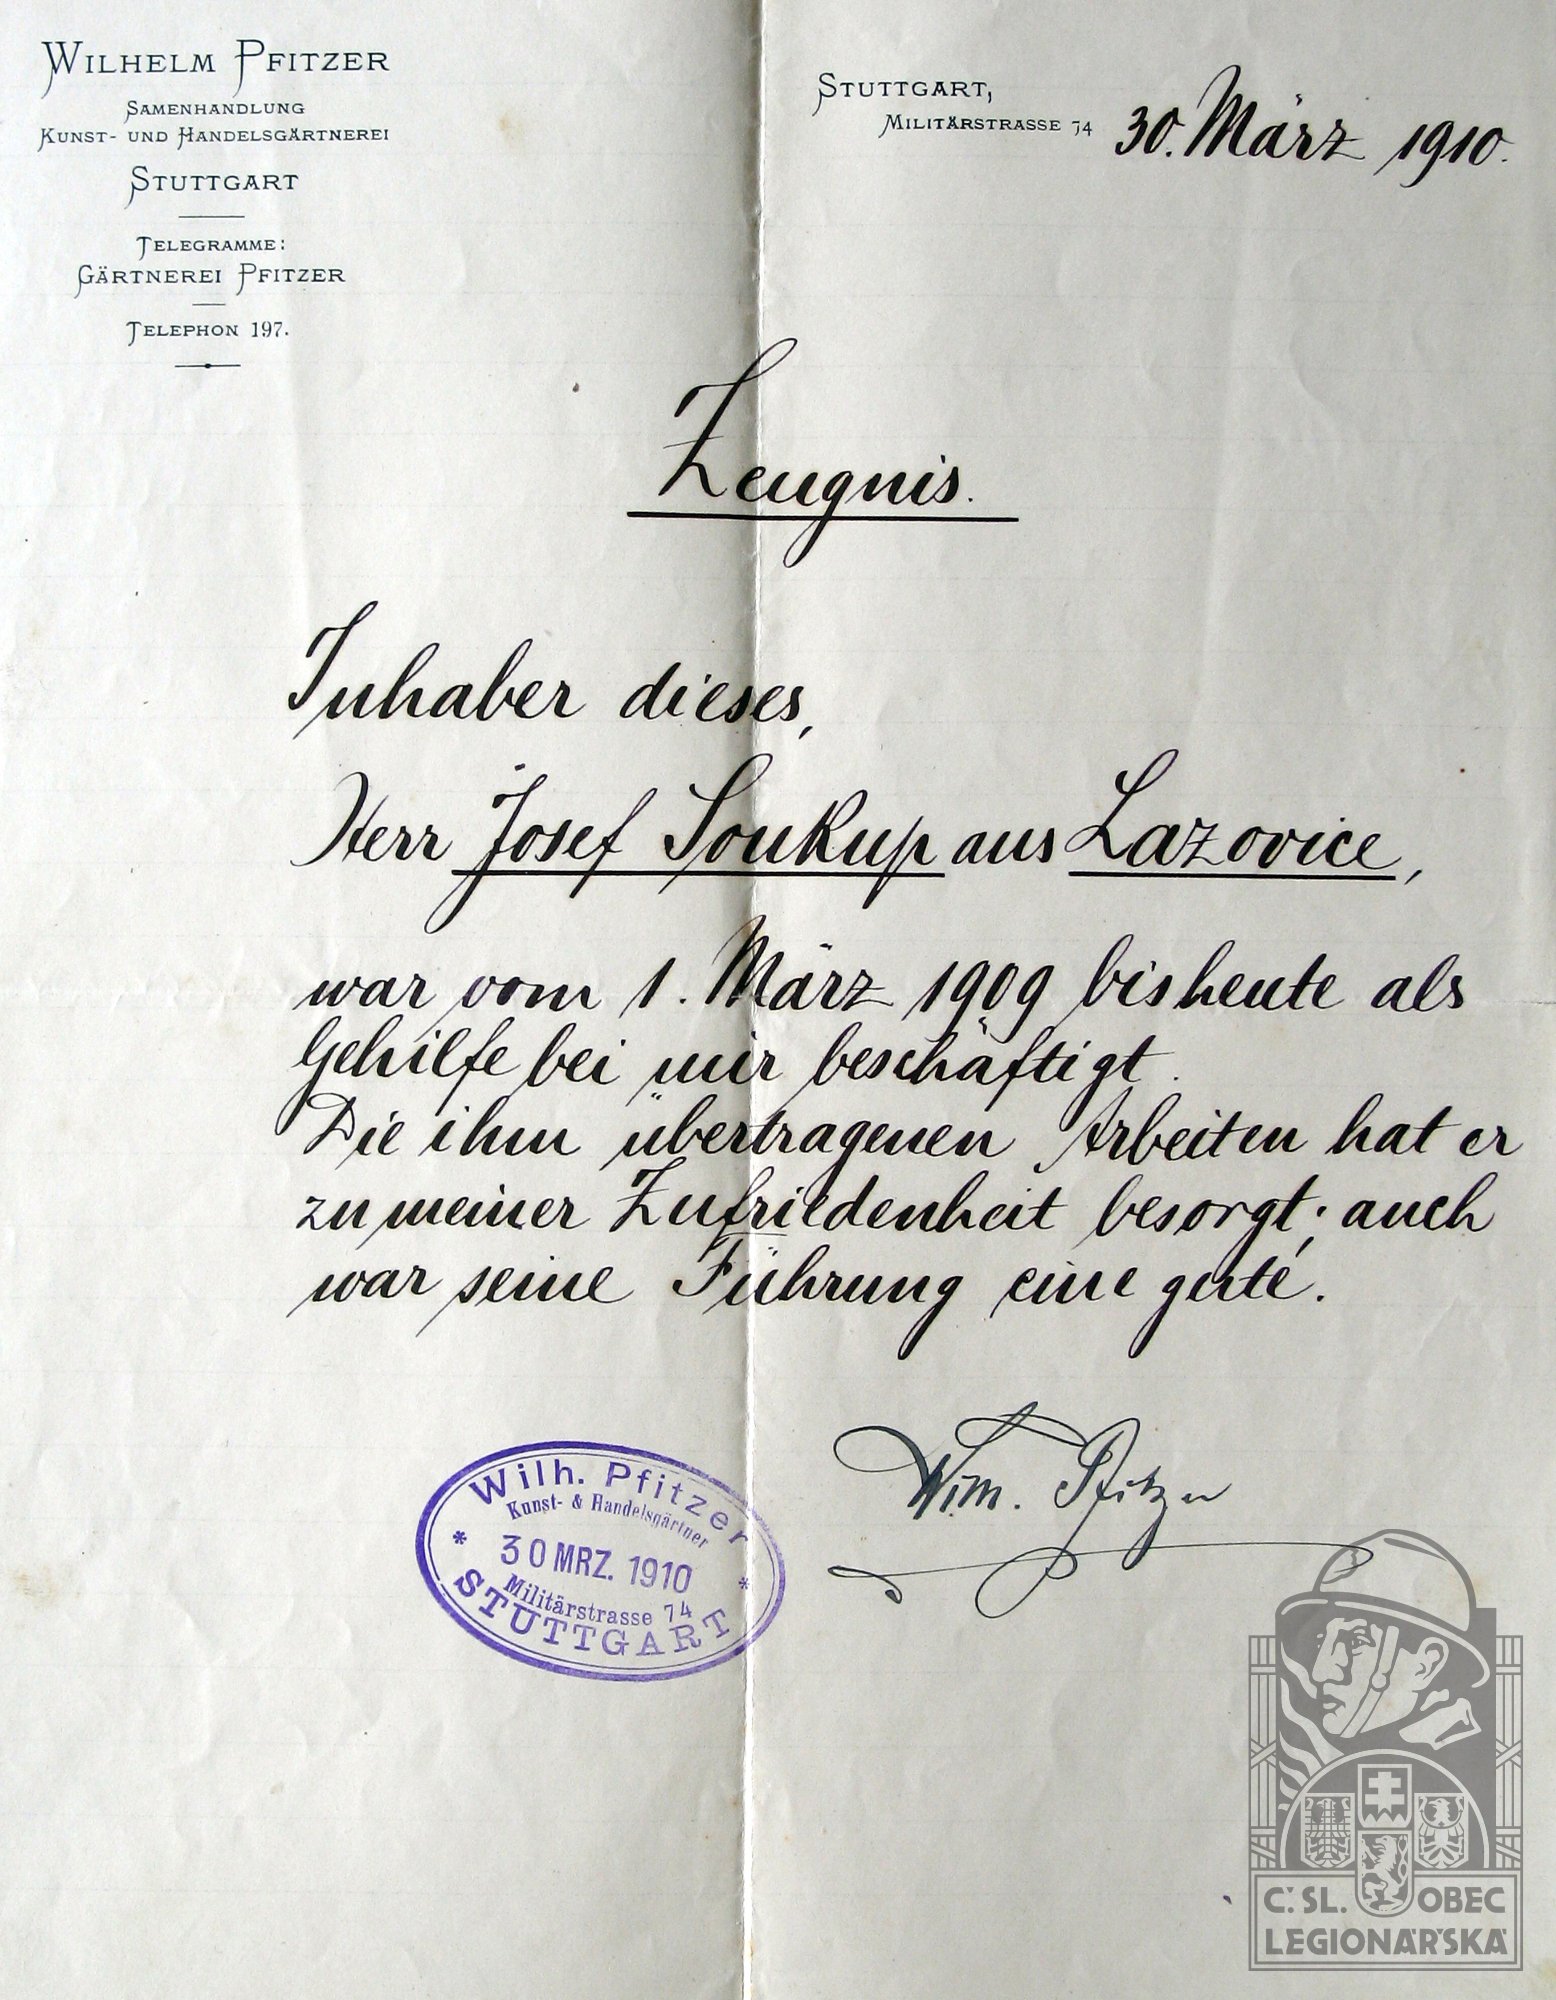 WILHELM PFITZER
SAMENHANDLUNG
KUNST- UND HANDELSGÄRTNEREI
STUTTGART
TELEGRAMME:
GÄRTNEREI PFITZER
TELEPHON 197.
STUTTGART,
MILITÄRSTRASSE 74
30. März 1910.
Zeugnis.
Inhaber dieses,
Herr Josef Soukup aus Lazovice,
war vom 1. März 1909 bis heute als
Gehilfe bei mir beschäftigt.
Die ihm übertragenen Arbeiten hat er
zu meiner Zufriedenheit besorgt; auch
war seine Führung eine gute.
Wilh. Pfitzer
Wilh. Pfitzer
Kunst- & Handelsgärtner
* 30 MRZ. 1910 *
Militärstrasse 74
STUTTGART
Č.SL. OBEC
LEGIONÁŘSKÁ